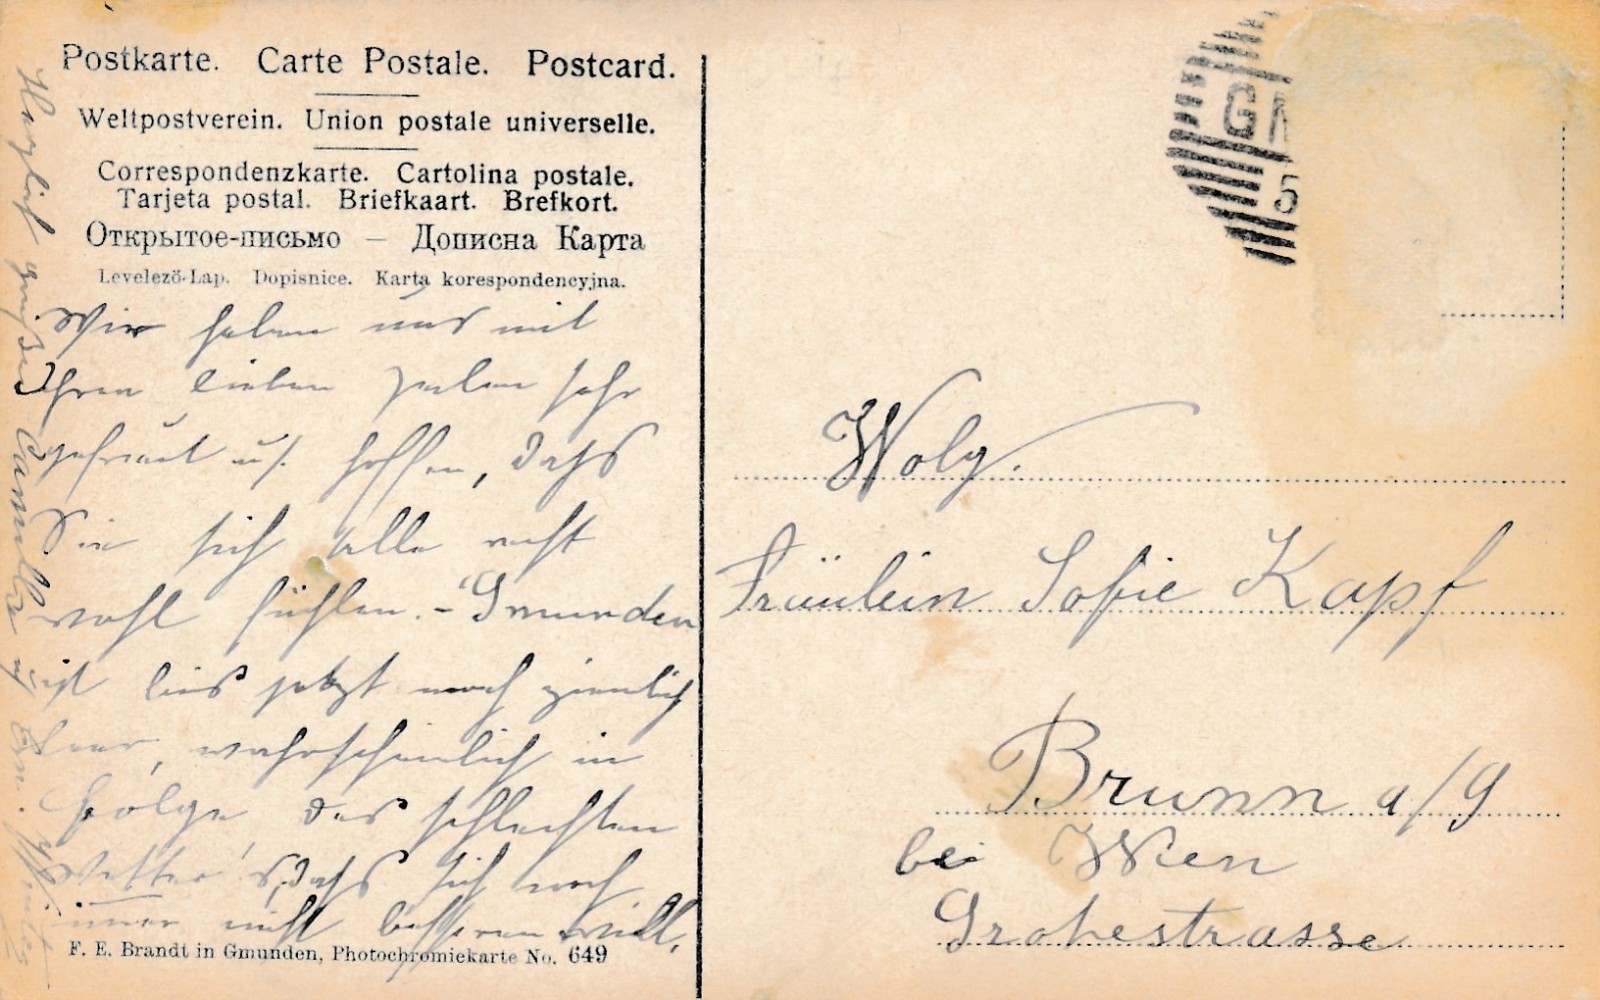 Postkarte. Carte Postale. Postcard.
Weltpostverein. Union postale universelle.
Correspondenzkarte. Cartolina postale.
Tarjeta postal. Briefkaart. Brefkort.
Открытое-письмо – Дописна Карта
Levelező-Lap. Dopisnice. Karta korespondencyjna.
Wir haben uns mit
Ihren lieben Zeilen sehr
gefreut u. hoffen, dass
Sie sich alle recht
wohl fühlen. – Gmunden
ist bis jetzt noch ziemlich
leer, wahrscheinlich in
Folge des schlechten
Wetters, das sich noch
immer nicht bessern will.
F. E. Brandt in Gmunden, Photochromiekarte No. 649
Herzlich grüßen Camilla u.
GM
5
Wolg.
Fräulein Sofie Kapf
Brunn a/G
bei Wien
Grohestrasse